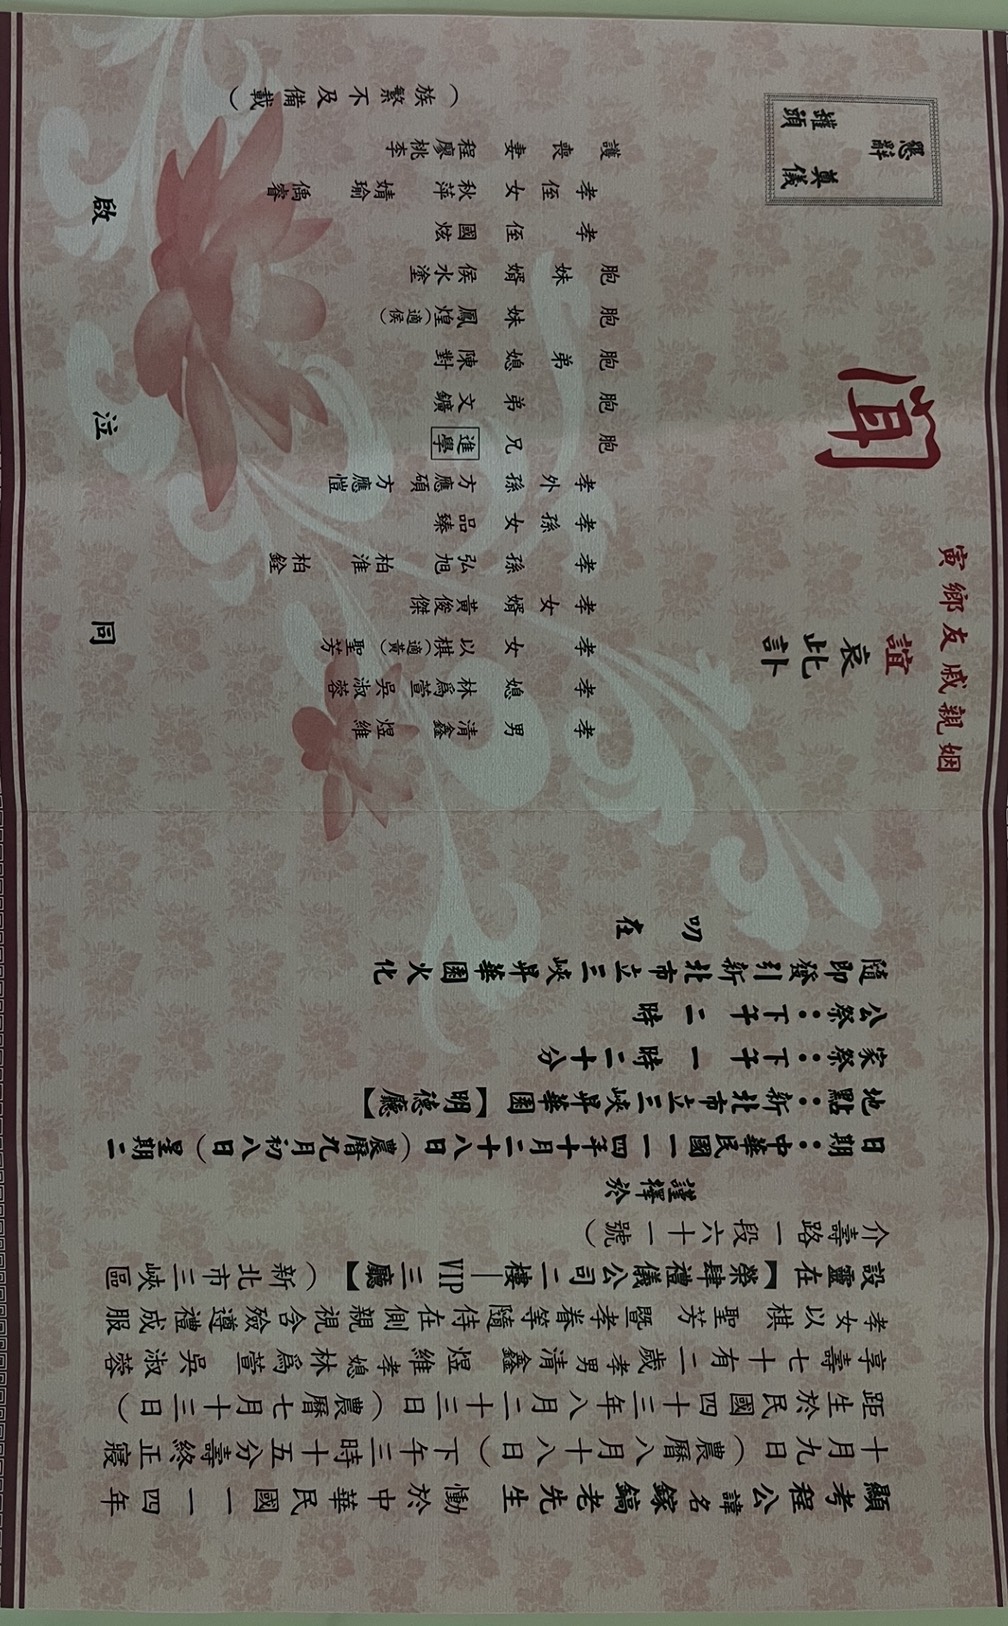 顯考程公諱名鎵鎬老先生 慟於中華民國一一四年
十月九日（農曆八月十八日）下午三時十五分壽終正寢
距生於民國四十三年八月二十三日（農曆七月十三日）
享壽七十有二歲孝男清鑫 煜維孝媳林爲萱 吳淑蓉
孝女以棋 聖芳 暨孝眷等隨侍在側親視含殮遵禮成服
設靈在【榮肆禮儀公司二樓—VIP三廳】（新北市三峽區
介壽路一段六十一號）
謹擇於
日期：中華民國一一四年十月二十八日（農曆九月初八日）星期二
地點：新北市立三峽昇華園【明德廳】
家祭：下午一時二十分
公祭：下午二時
隨即發引新北市立三峽昇華園火化
叨在
寅鄉友戚親姻
誼
哀
此
訃
聞
懇辭 奠儀
罐頭
孝男 清鑫 煜維
孝媳 林爲萱 吳淑蓉
孝女 以棋（適黃） 聖芳
孝女婿 黃俊傑
孝孫 弘旭 柏淮 柏銓
孝孫女 品臻
孝外孫 方應碩 方應愷
胞兄 進學
胞弟 文鑛
胞弟媳 陳對
胞妹 鳳煌（適侯）
胞妹婿 侯水塗
孝侄 國炫
孝侄女 秋萍 婧瑜 偊睿
護喪妻 程廖桃李
（族繁不及備載）
同 泣 啟